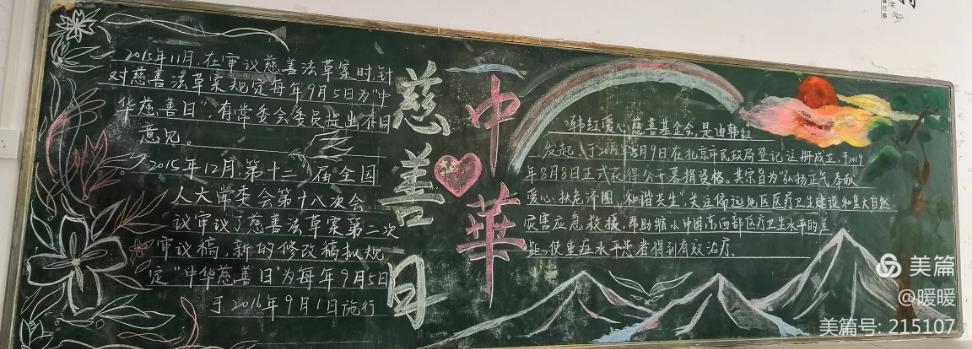 2015年11月,在审议慈善法草案时,针
对慈善法草案规定每年9月5日为"中
华慈善日",有常委会委员提出不同
意见。
2015年12月,第十二届全国
人大常委会第十八次会
议审议了慈善法草案第二次
审议稿,新的修改稿拟规
定"中华慈善日"为每年9月5日
于2016年9月1日施行
中華
慈善日
韩红爱心慈善基金会,是由韩红
发起,于2012年5月9日在北京市民政局登记注册成立,于2019
年8月8日正式获得公开募捐资格。其宗旨为"弘扬正气奉献
爱心,扶危济困,和谐共生",关注偏远地区医疗卫生建设和重大自然
灾害应急救援,帮助缩小中国东西部医疗卫生水平的差
距,使重症水平患者得到有效治疗.
美篇
@暖暖
美篇号: 215107